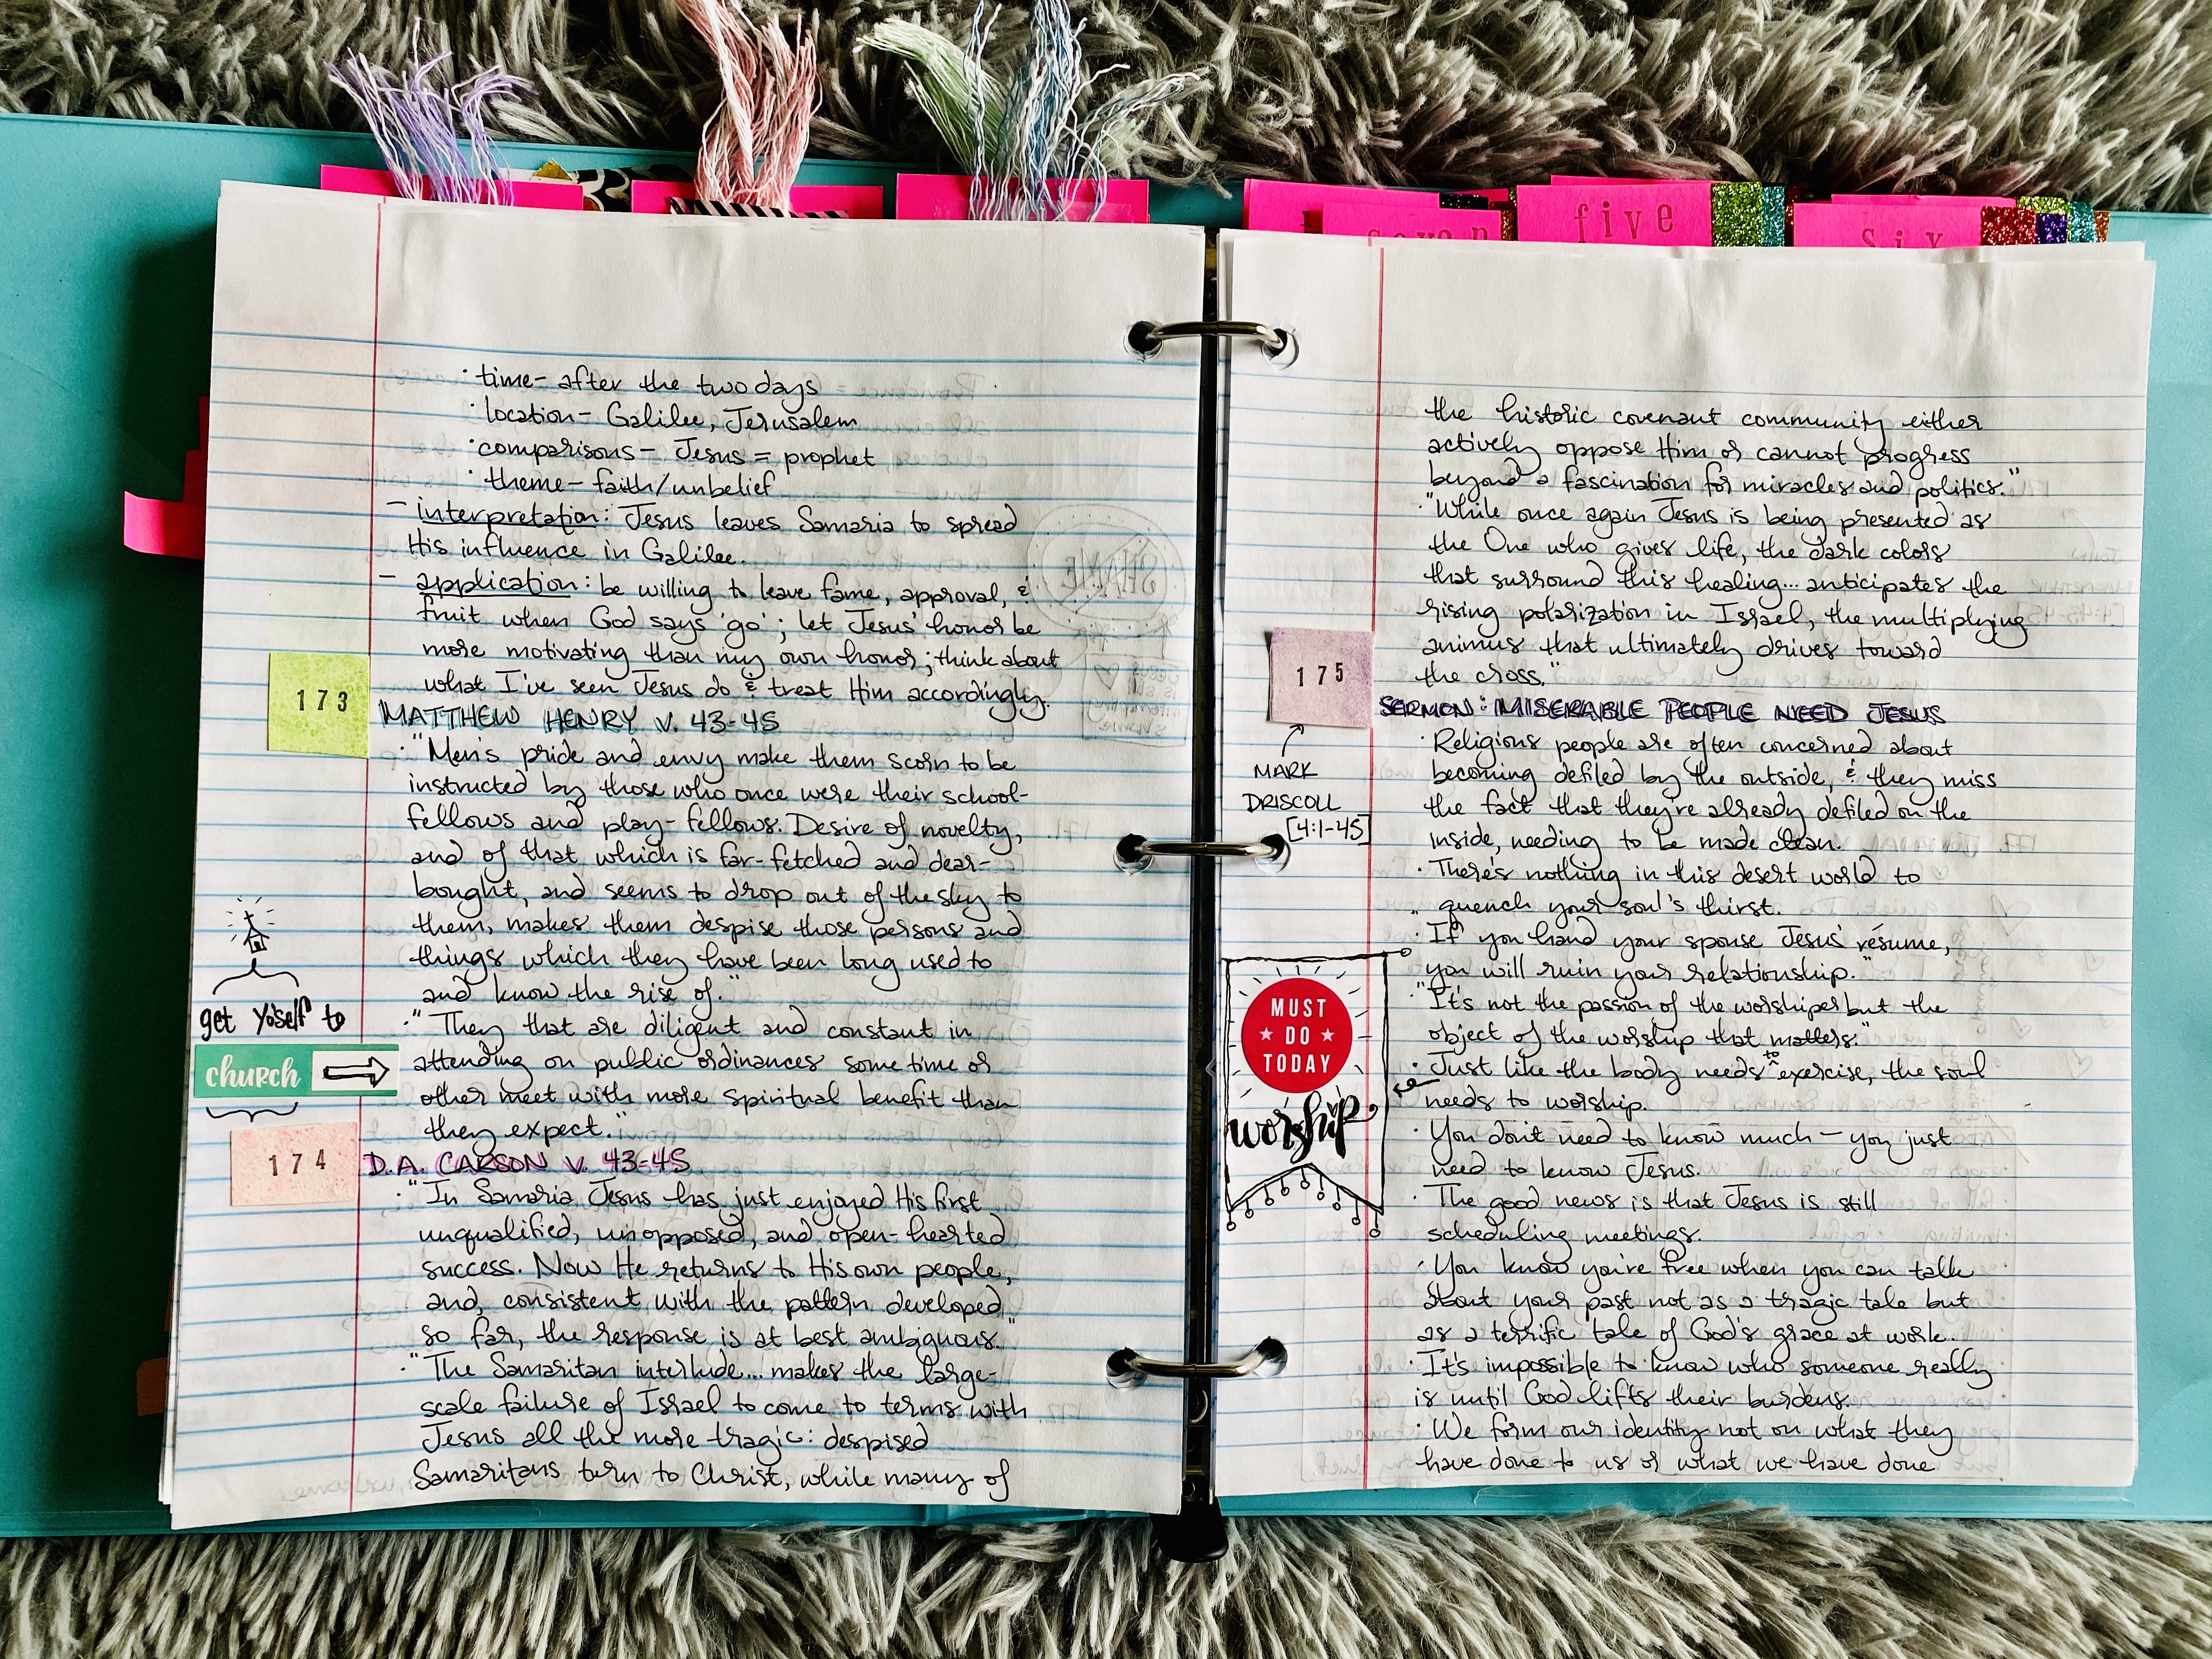 five
six
seven
· time - after the two days
· location - Galilee, Jerusalem
· comparisons - Jesus = prophet
· theme - faith/unbelief
- interpretation: Jesus leaves Samaria to spread
His influence in Galilee.
- application: be willing to leave fame, approval, &
fruit when God says 'go'; let Jesus' honor be
more motivating than my own honor; think about
what I've seen Jesus do & treat Him accordingly.
173
MATTHEW HENRY v. 43-45
· "Men's pride and envy make them scorn to be
instructed by those who once were their school-
fellows and play-fellows. Desire of novelty,
and of that which is far-fetched and dear-
bought, and seems to drop out of the sky to
them, makes them despise those persons and
things which they have been long used to
and know the rise of."
· "They that are diligent and constant in
attending on public ordinances some time or
other meet with more spiritual benefit than
they expect."
get yo'self to
church
174
D.A. CARSON v. 43-45
· "In Samaria Jesus has just enjoyed His first
unqualified, unopposed, and open-hearted
success. Now He returns to His own people,
and, consistent with the pattern developed
so far, the response is at best ambiguous."
· "The Samaritan interlude... makes the large-
scale failure of Israel to come to terms with
Jesus all the more tragic: despised
Samaritans turn to Christ, while many of
the historic covenant community either
actively oppose Him or cannot progress
beyond a fascination for miracles and politics."
· "While once again Jesus is being presented as
the One who gives life, the dark colors
that surround this healing... anticipates the
rising polarization in Israel, the multiplying
animus that ultimately drives toward
the cross."
175
MARK
DRISCOLL
[4:1-45]
SERMON: MISERABLE PEOPLE NEED JESUS
· Religious people are often concerned about
becoming defiled by the outside, & they miss
the fact that they're already defiled on the
inside, needing to be made clean.
· There's nothing in this desert world to
quench your soul's thirst.
· "If you hand your spouse Jesus' résume,
you will ruin your relationship."
· "It's not the passion of the worshiper but the
object of the worship that matters."
· Just like the body needs to exercise, the soul
needs to worship.
MUST
DO
TODAY
worship
· You don't need to know much - you just
need to know Jesus.
· The good news is that Jesus is still
scheduling meetings.
· You know you're free when you can talk
about your past not as a tragic tale but
as a terrific tale of God's grace at work.
· It's impossible to know who someone really
is until God lifts their burdens.
· We form our identity not on what they
have done to us or what we have done